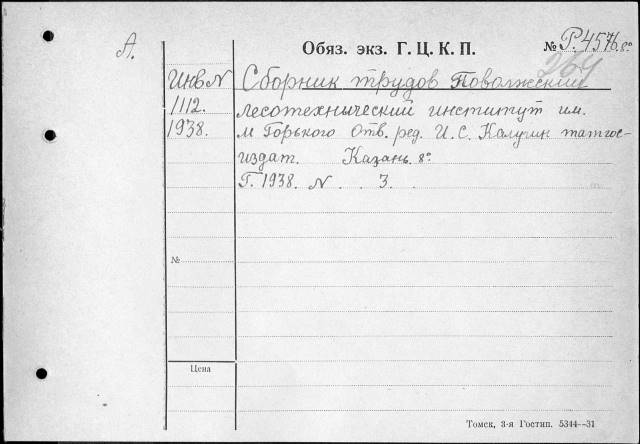 А.
Обяз. экз. Г. Ц. К. П.
№ Р.4576.со
264
Инв N
1112.
1938.
Сборник трудов Поволжский
лесотехнический институт им.
М Горького Отв. ред. И. С. Калугин татгос-
издат. Казань. 8º
Г. 1938. N . . 3.
№
Цена
Томск, 3-я Гостип. 5344—31